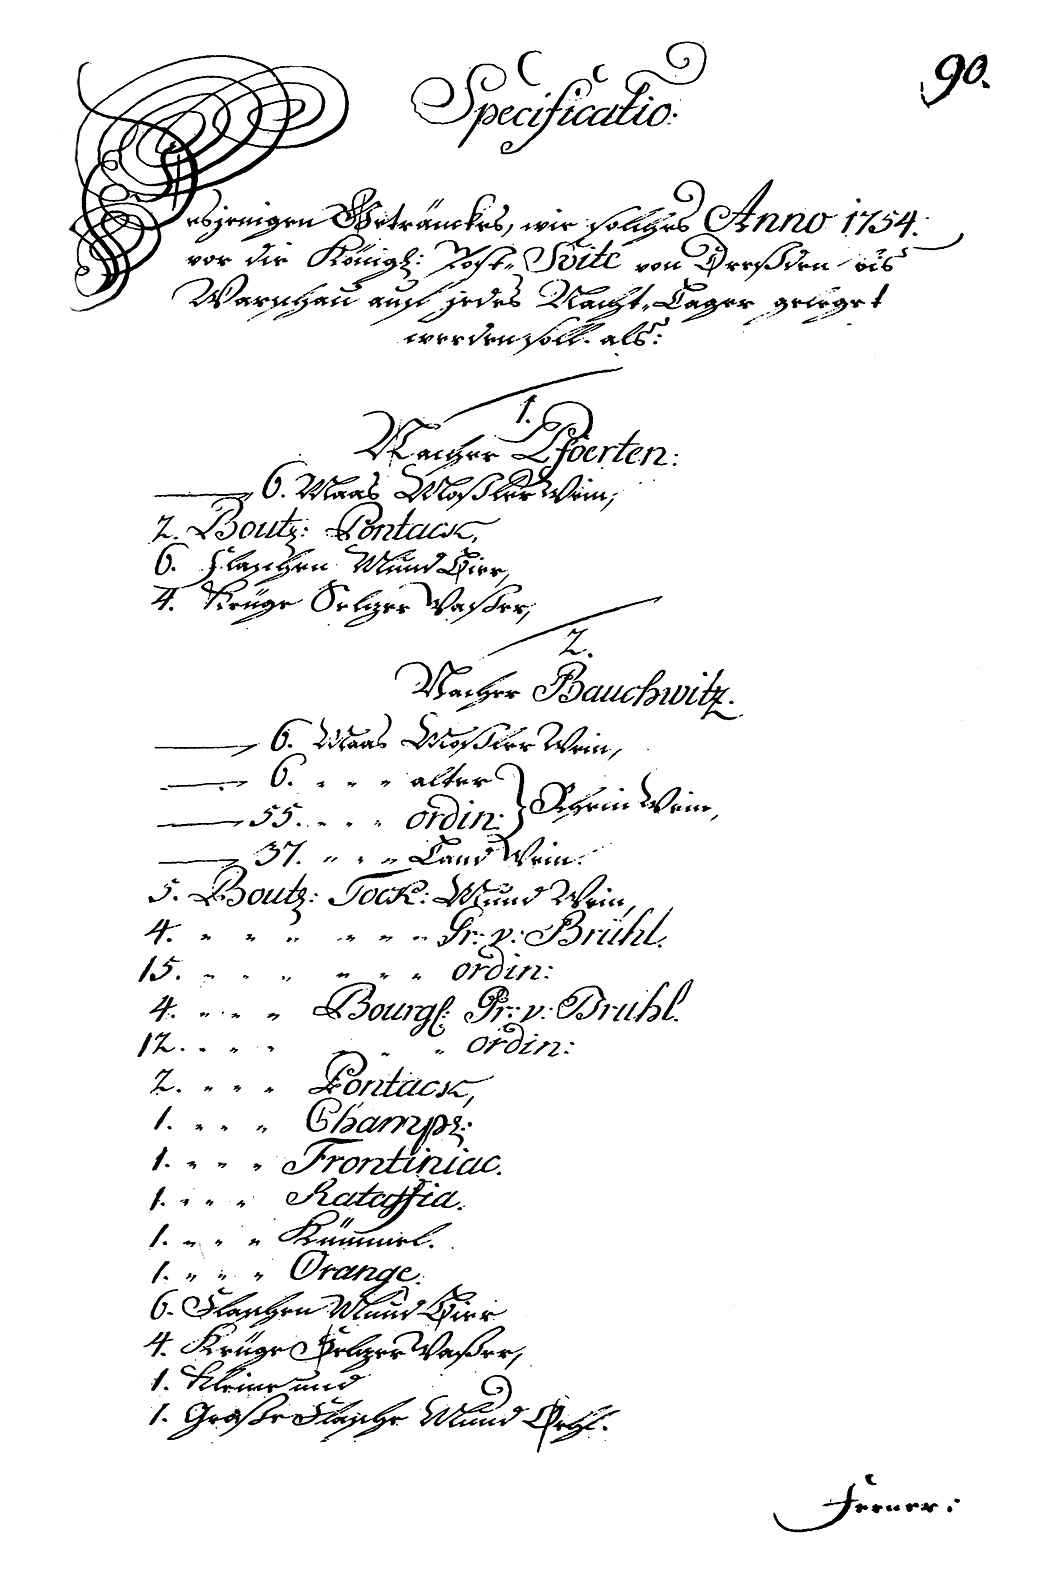 90.
Specificatio:
Desjenigen Geträncks, wie solches Anno 1754.
vor die Königl: Post- Svite von Dreßden bis
Warschau auf jedes Nacht-Lager geleget
werden soll. als:
1.
Nacher Pfoerten:
6. Maas Moßler Wein,
2. Bout: Pontack,
6. Flaschen Mund Bier,
4. Krüge Selzer Waßer,
2.
Nacher Bauchwitz.
6. Maas Moßler Wein,
6. " " " alter
55. " " " ordin: } Rhein Wein,
37. " " " Land Wein.
5. Bout: Tock: Mund Wein,
4. " " " " " " Pr: v: Brühl.
15. " " " " " " ordin:
4. " " " Bourgl: Pr: v: Brühl.
12. " " " " " " ordin:
2. " " " Pontack,
1. " " " Champ:
1. " " " Frontiniac.
1. " " " Rataffia.
1. " " " Kümmel.
1. " " " Orange.
6. Flaschen Mund Bier
4. Krüge Selzer Waßer,
1. Kleine und
1. Große Flasche Mund Oehl.
Ferner: